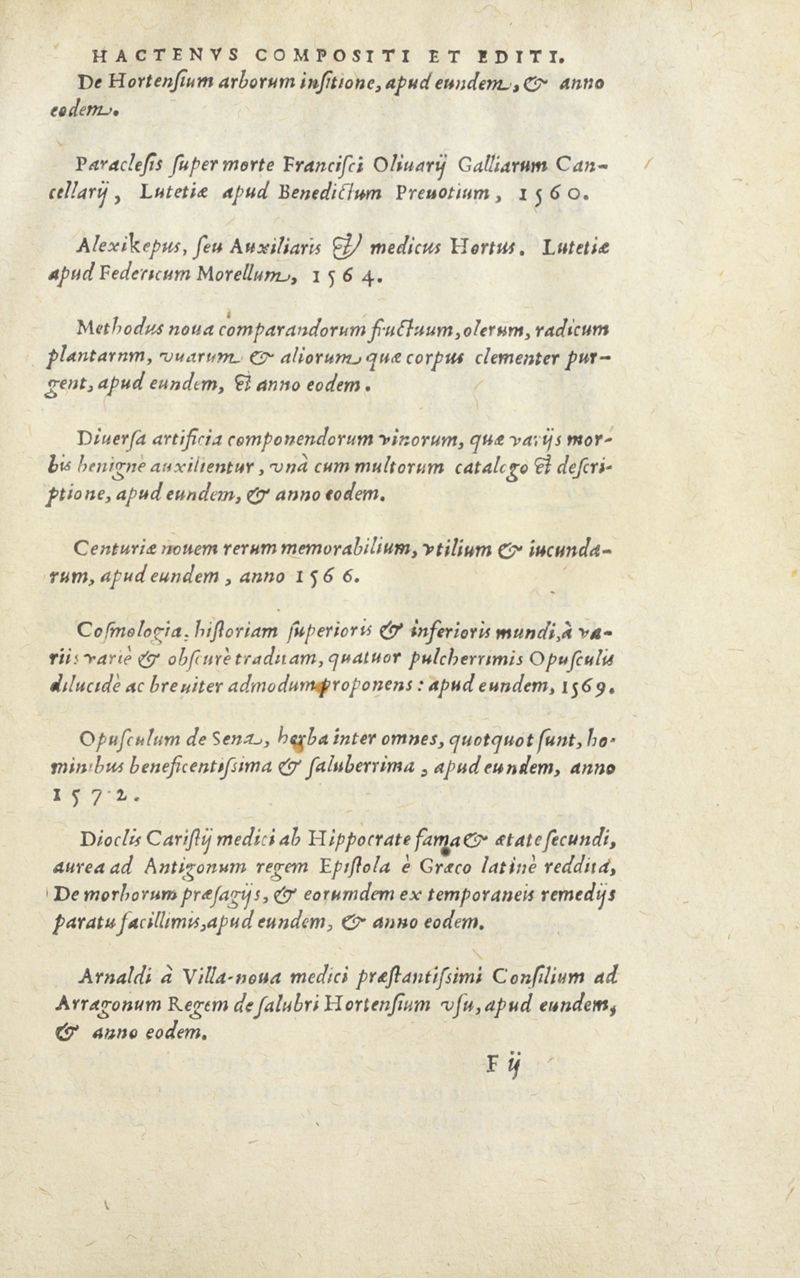 HACTENVS COMPOSITI ET EDITI.
De Hortenſium arborum inſitione, apud eundem, & anno
eodem.
Paracleſis ſuper morte Franciſci Oliuarij Galliarum Can-
cellarij, Lutetiæ apud Benedictum Preuotium, 1560.
Alexikepus, ſeu Auxiliaris & medicus Hortus. Lutetiæ
apud Federicum Morellum, 1564.
Methodus noua comparandorum fructuum, olerum, radicum
plantarnm, vuarum & aliorum quæ corpus clementer pur-
gent, apud eundem, & anno eodem.
Diuerſa artificia componendorum vinorum, quæ varijs mor-
bis benignè auxilientur, vnà cum multorum catalogo & deſcri-
ptione, apud eundem, & anno eodem.
Centuriæ nouem rerum memorabilium, vtilium & iucunda-
rum, apud eundem, anno 1566.
Coſmologia, hiſtoriam ſuperioris & inferioris mundi, à va-
riis variè & obſcurè traditam, quatuor pulcherrimis Opuſculis
dilucidè ac breuiter admodum proponens: apud eundem, 1569.
Opuſculum de Sena, herba inter omnes, quotquot ſunt, ho-
minibus beneficentiſsima & ſaluberrima, apud eundem, anno
1572.
Dioclis Cariſtij medici ab Hippocrate fama & ætate ſecundi,
aurea ad Antigonum regem Epiſtola è Græco latinè reddita,
De morborum præſagijs, & eorumdem ex temporaneis remedijs
paratu facillimis, apud eundem, & anno eodem.
Arnaldi à Villa-noua medici præſtantiſsimi Conſilium ad
Arragonum Regem de ſalubri Hortenſium vſu, apud eundem,
& anno eodem.
F ij